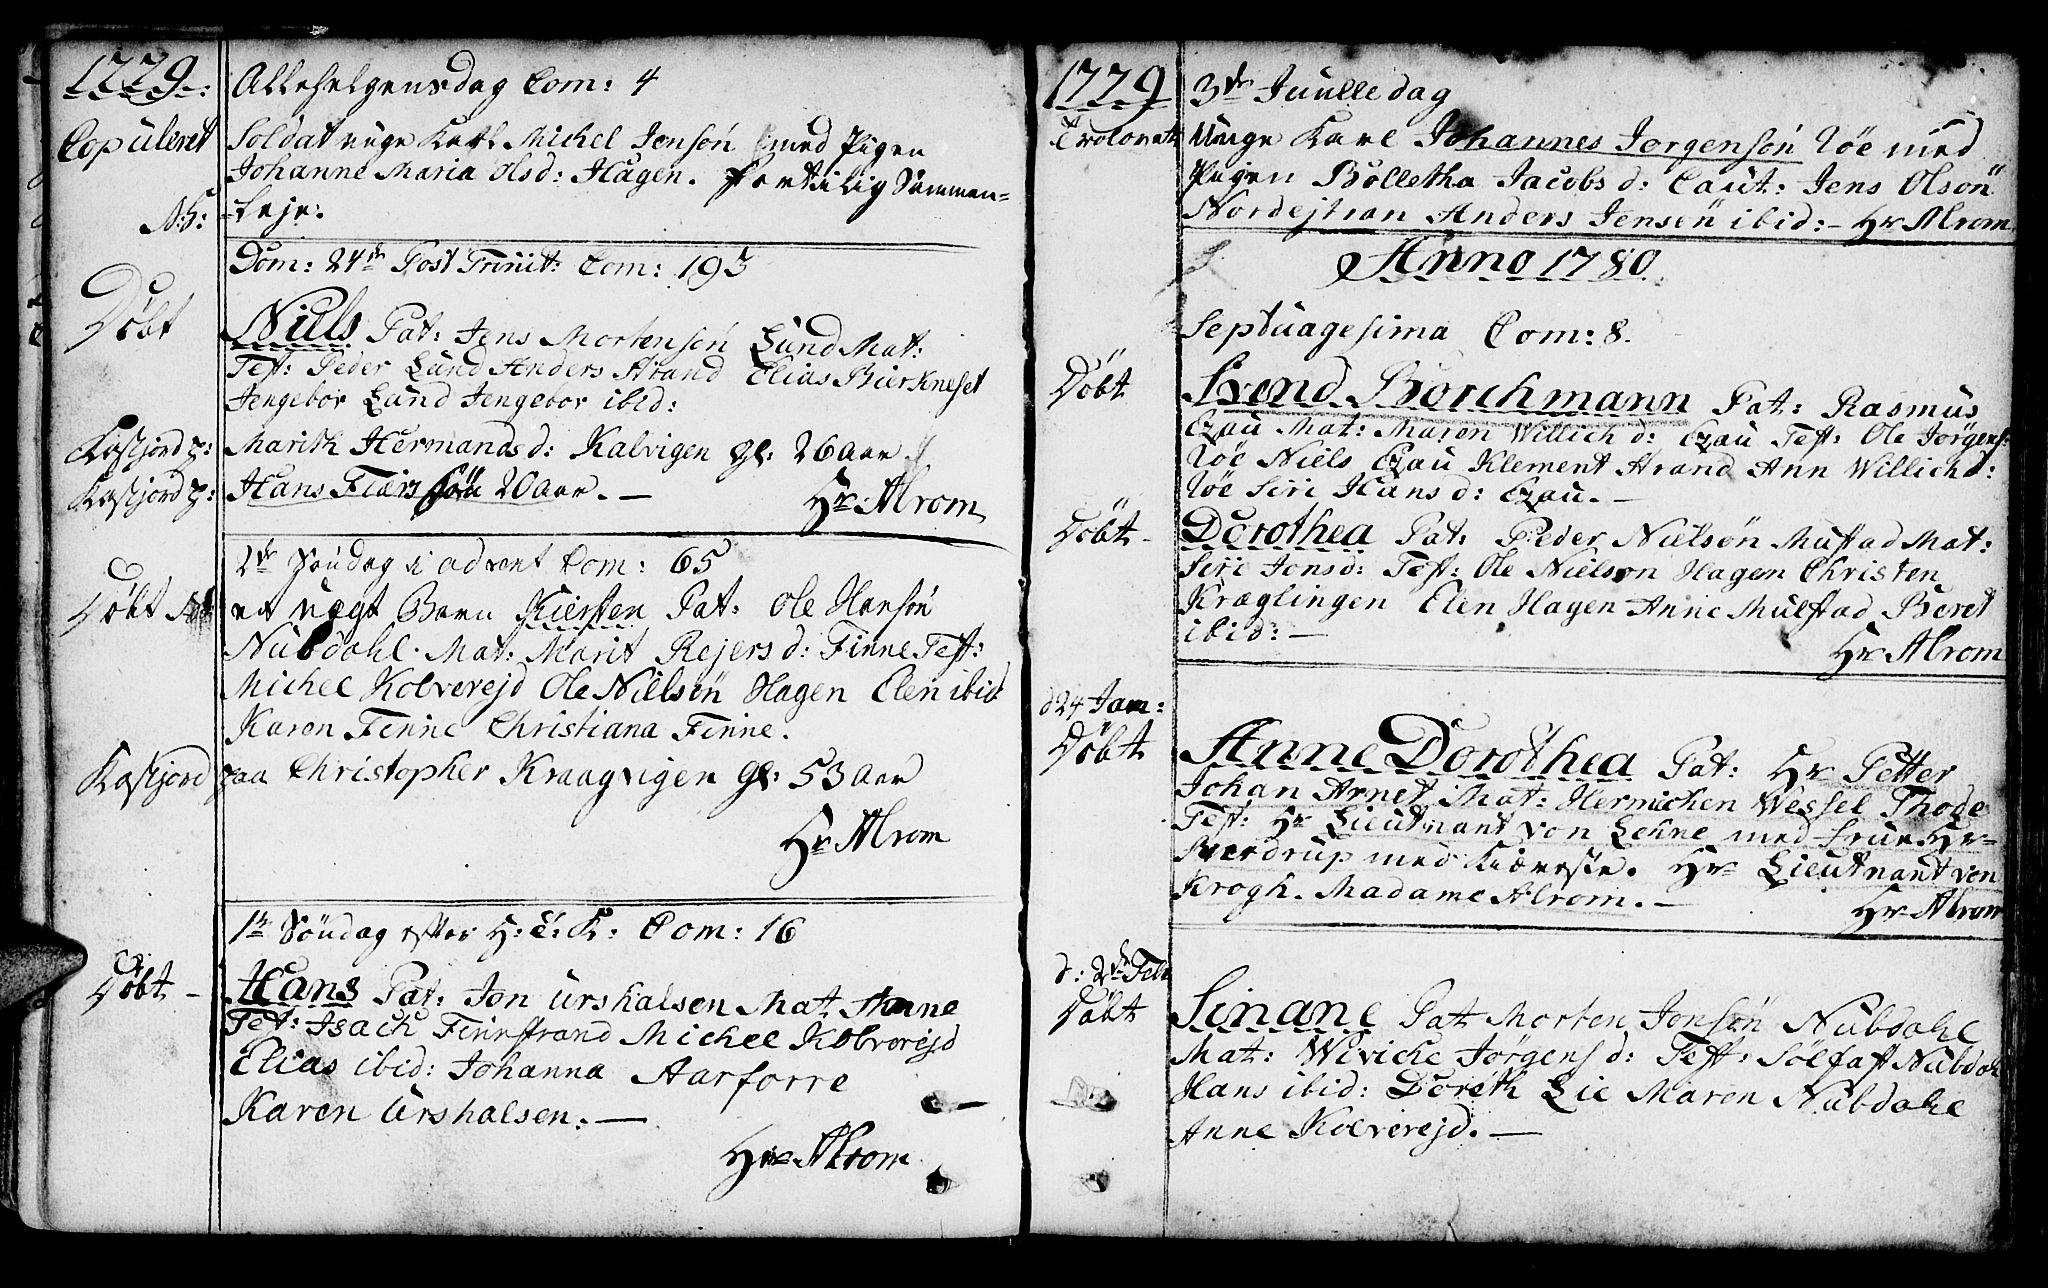 1779.
Allehelgensdag Com: 4
Copuleret Soldat unge Karl Michel Jonsön med Pigen
Johanne Maria Olsd: Hagen. for tilig Sammen-
N.B: -leje.
Dom: 24de Post Trinit: Com: 193
Döbt Niels Pat: Jens Mortensön Lund Mat:
Test: Peder Lund Anders Strand Elias Bierkneset
Jengebor Lund Jengebor ibid:
Kastjord p: Marith Hermands d: Kalvigen gl: 26 Aar
Kastjord p: Hans Fiærs sön 20 Aar. —
Hr Alrom
2den Söndag i advent Com: 65
Döbt et uægt Barn Kiersten Pat: Ole Hansön
Nubdahl. Mat: Marit Rejers d: Finne Test:
Michel Kolverejd Ole Nielsön Hagen Elen ibid
Karen Finne Christiana Finne.
Kastjord paa Christopher Kraagvigen gl: 53 Aar
Hr Alrom
1te Söndag efter H: 3: K: Com: 16
Döbt - Hans Pat: Jon Urshalsen Mat Anne
Test: Isach Finnestrand Michel Kolverejd
Elias ibid: Johanna Aarforre
Karen Urshalsen. —
Hr Alrom
1779 3de Juulle dag
Troloret unge Karl Johannes Jorgensön Löe med
Pigen Bolletha Jacobs d: Caut: Jens Olsön
Nordejtran Anders Jensen ibid: - Hr Alrom
Anno 1780.
Septuagesima Com: 8.
Döbt Svend Borchmann Pat: Rasmus
Mat: Maren Willich d: Test: Ole Jörgens:
Löe Niels Klement Strand Ann Willichd:
Löe Siri Hans d:
Döbt - Dorothea Pat: Peder Nielsön Mustad Mat:
Siri Jonsd: Test: Ole Nielson Hagen Christen
Kræglingen Elen Hagen Anne Mulstad Beret
ibid: —
Hr Alrom
d 24 Jan:
Döbt Anne Dorothea Pat: Hr Petter
Johan Arnet Mat: Hermichen Wessel Thode
Test: Hr Lieutnant von Lehne med frue. Hr
Sverdrup med Kiæreste. Hr Lieutnant von
Krogh. Madame Alrom. —
Hr Alrom
d: 2de Feb
Döbt Sinane Pat: Morten Jonsön Nubdahl
Mat: Wivicke Jörgens d: Test: Sölfast Nubdah
Hans ibid: Doreth Lie Maren Nubdahl
Anne Kolverejd. —